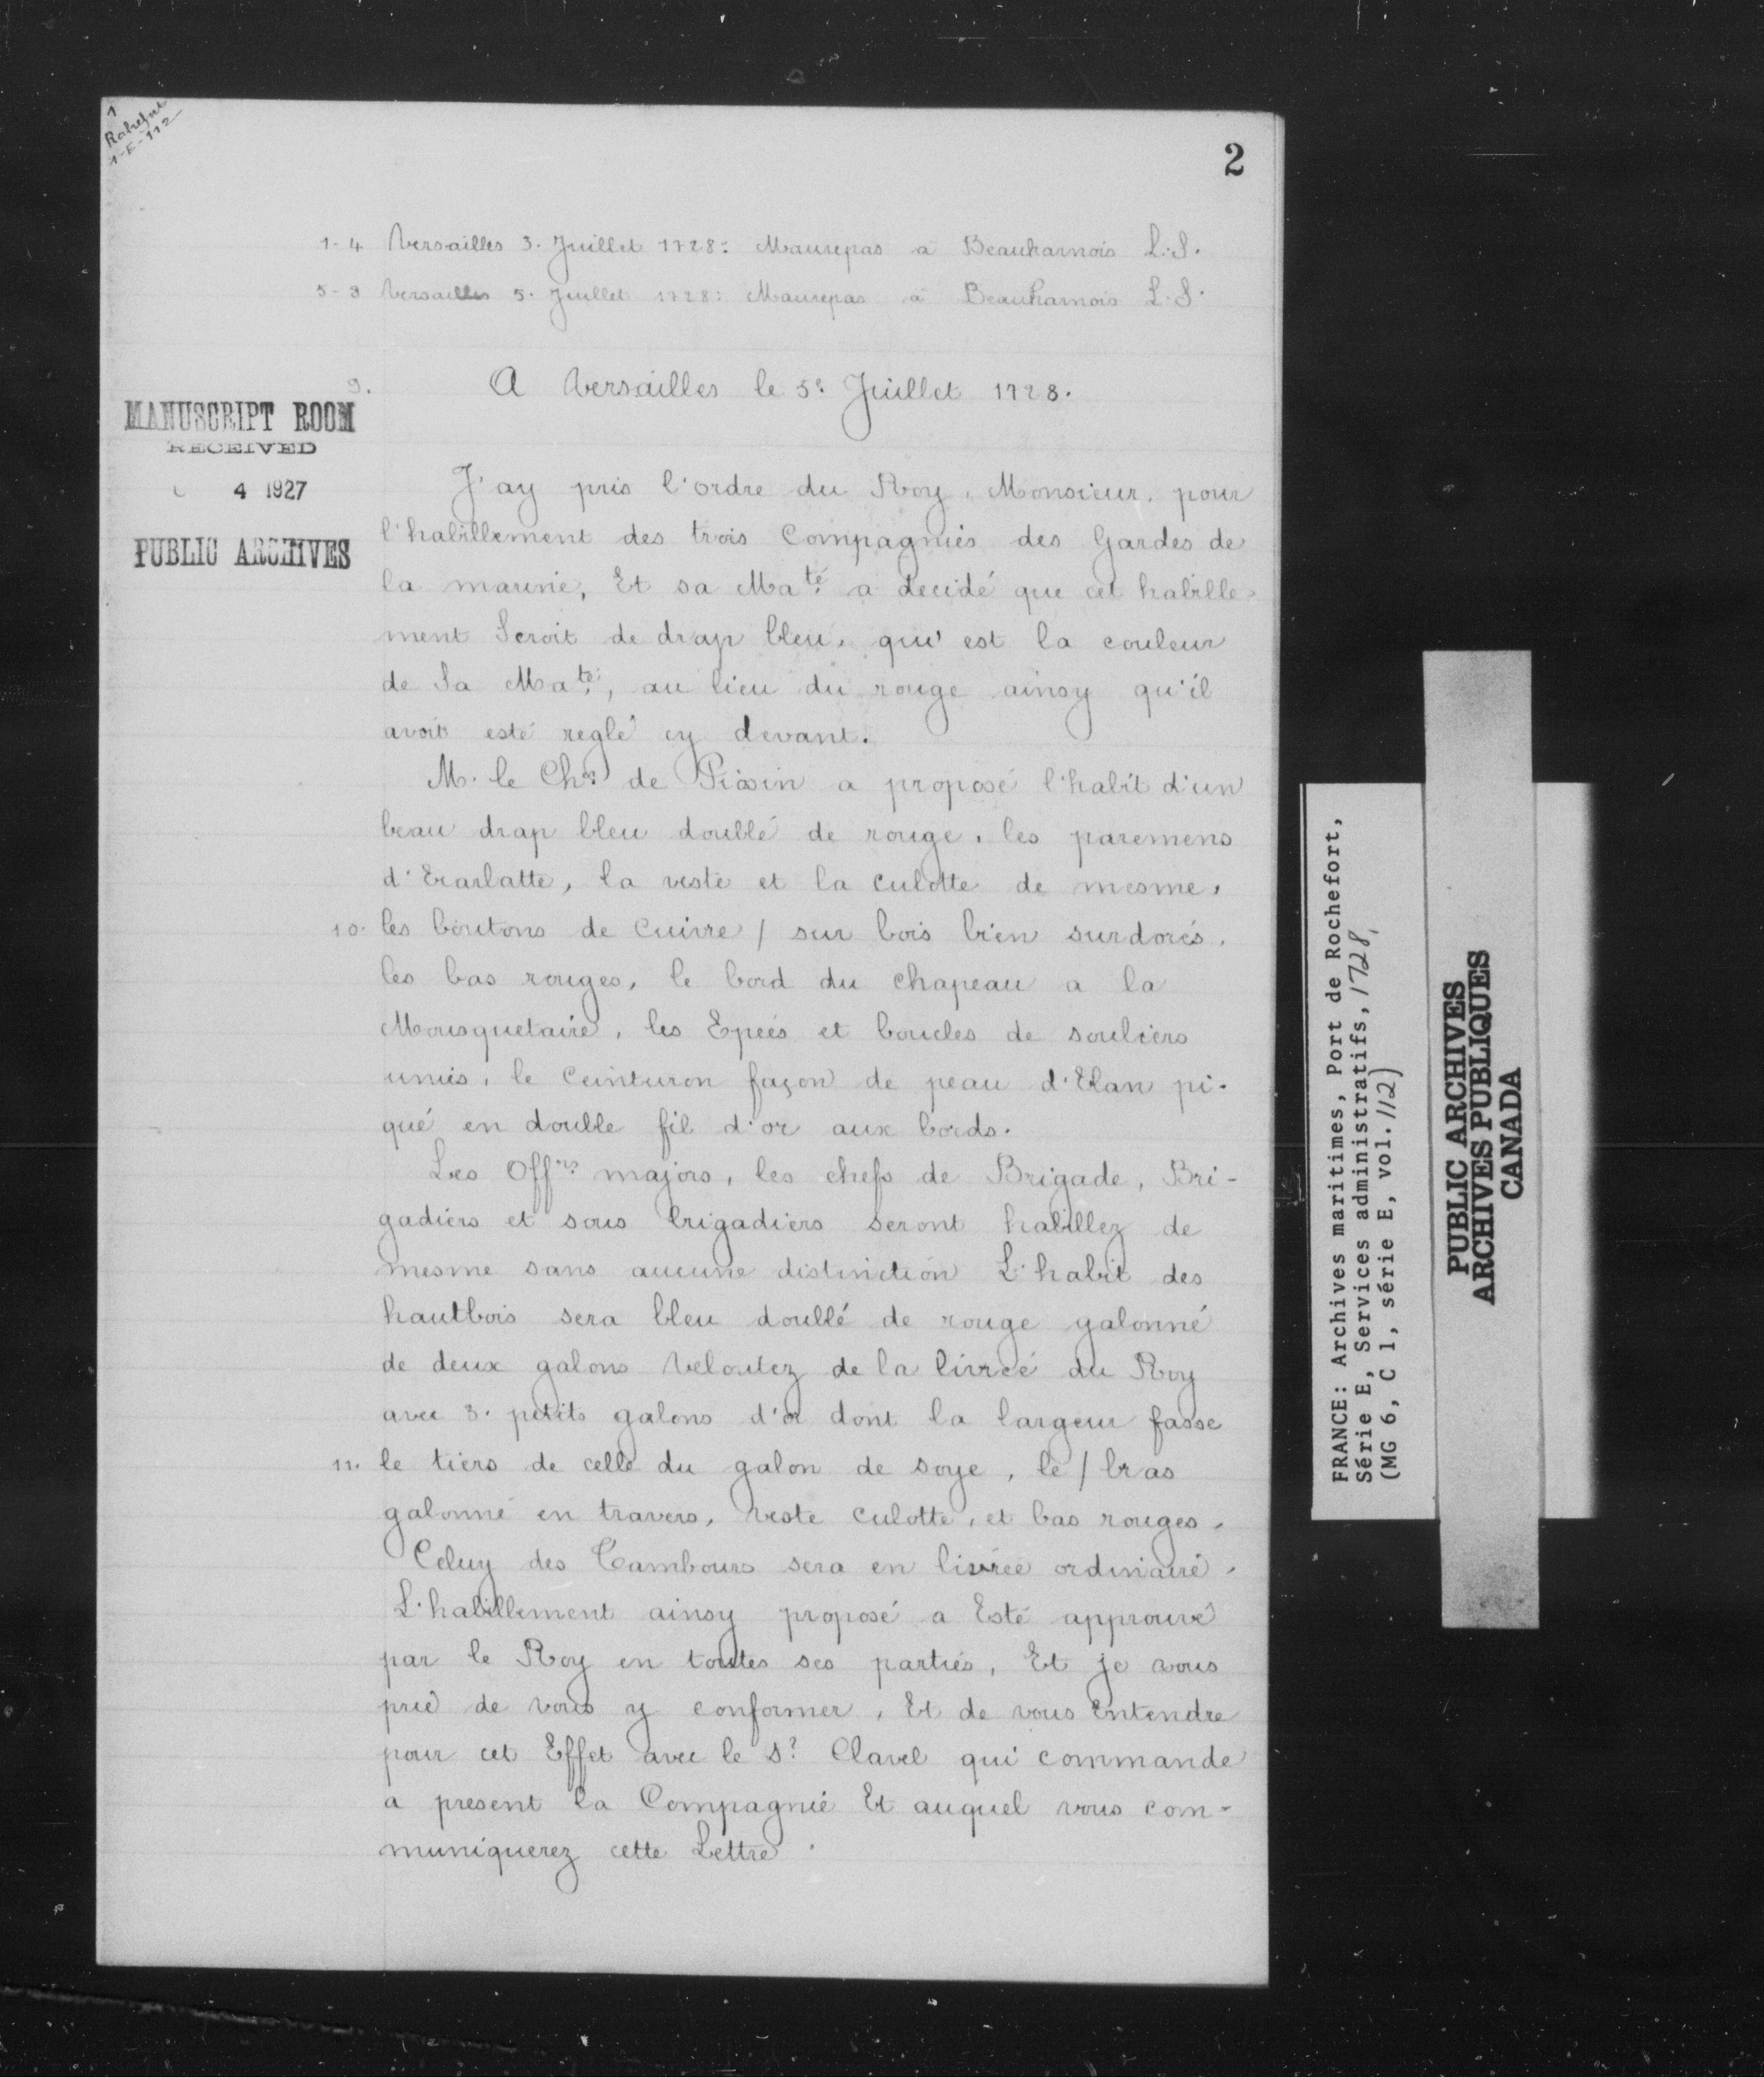 1
1-E-112
2
1-4 Versailles 3. Juillet 1728: Maurepas à Beauharnois L.S.
5-9 Versailles 5. Juillet 1728: Maurepas à Beauharnois L.S.
9. A Versailles le 5e Juillet 1728.
MANUSCRIPT ROOM
RECEIVED
4 1927
PUBLIC ARCHIVES
J'ay pris l'ordre du Roy, Monsieur, pour
l'habillement des trois Compagnies des Gardes de
la marine, Et sa Maté a decidé que cet habille-
ment Seroit de drap bleu, qui est la couleur
de Sa Maté, au lieu du rouge ainsy qu'il
avoit esté reglé cy devant.
M. le Cher de Piosin a proposé l'habit d'un
beau drap bleu doublé de rouge, les paremens
d'Ecarlatte, la veste et la culotte de mesme,
10. les boutons de cuivre / sur bois bien surdorés,
les bas rouges, le bord du chapeau a la
Mousquetaire, les Epées et boucles de souliers
unies, le Ceinturon façon de peau d'Elan pi-
qué en double fil d'or aux bords.
Les Offrs majors, les chefs de Brigade, Bri-
gadiers et sous brigadiers seront habillez de
mesme sans aucune distinction L'habit des
hautbois sera bleu doublé de rouge galonné
de deux galons veloutez de la livrée du Roy
avec 3. petits galons d'or dont la largeur fasse
11. le tiers de celle du galon de soye, le / bras
galonné en travers, veste culotte, et bas rouges.
Celuy des Tambours sera en livrée ordinaire.
L'habillement ainsy proposé a Esté approuvé
par le Roy en toutes ses parties, Et je vous
prie de vous y conformer, Et de vous Entendre
pour cet Effet avec le Sr Clavel qui commande
a present la Compagnie Et auquel vous com-
muniquerez cette Lettre.
FRANCE: Archives maritimes, Port de Rochefort,
Série E, Services administratifs, 1728,
(MG 6, C 1, série E, vol. 112)
PUBLIC ARCHIVES
ARCHIVES PUBLIQUES
CANADA